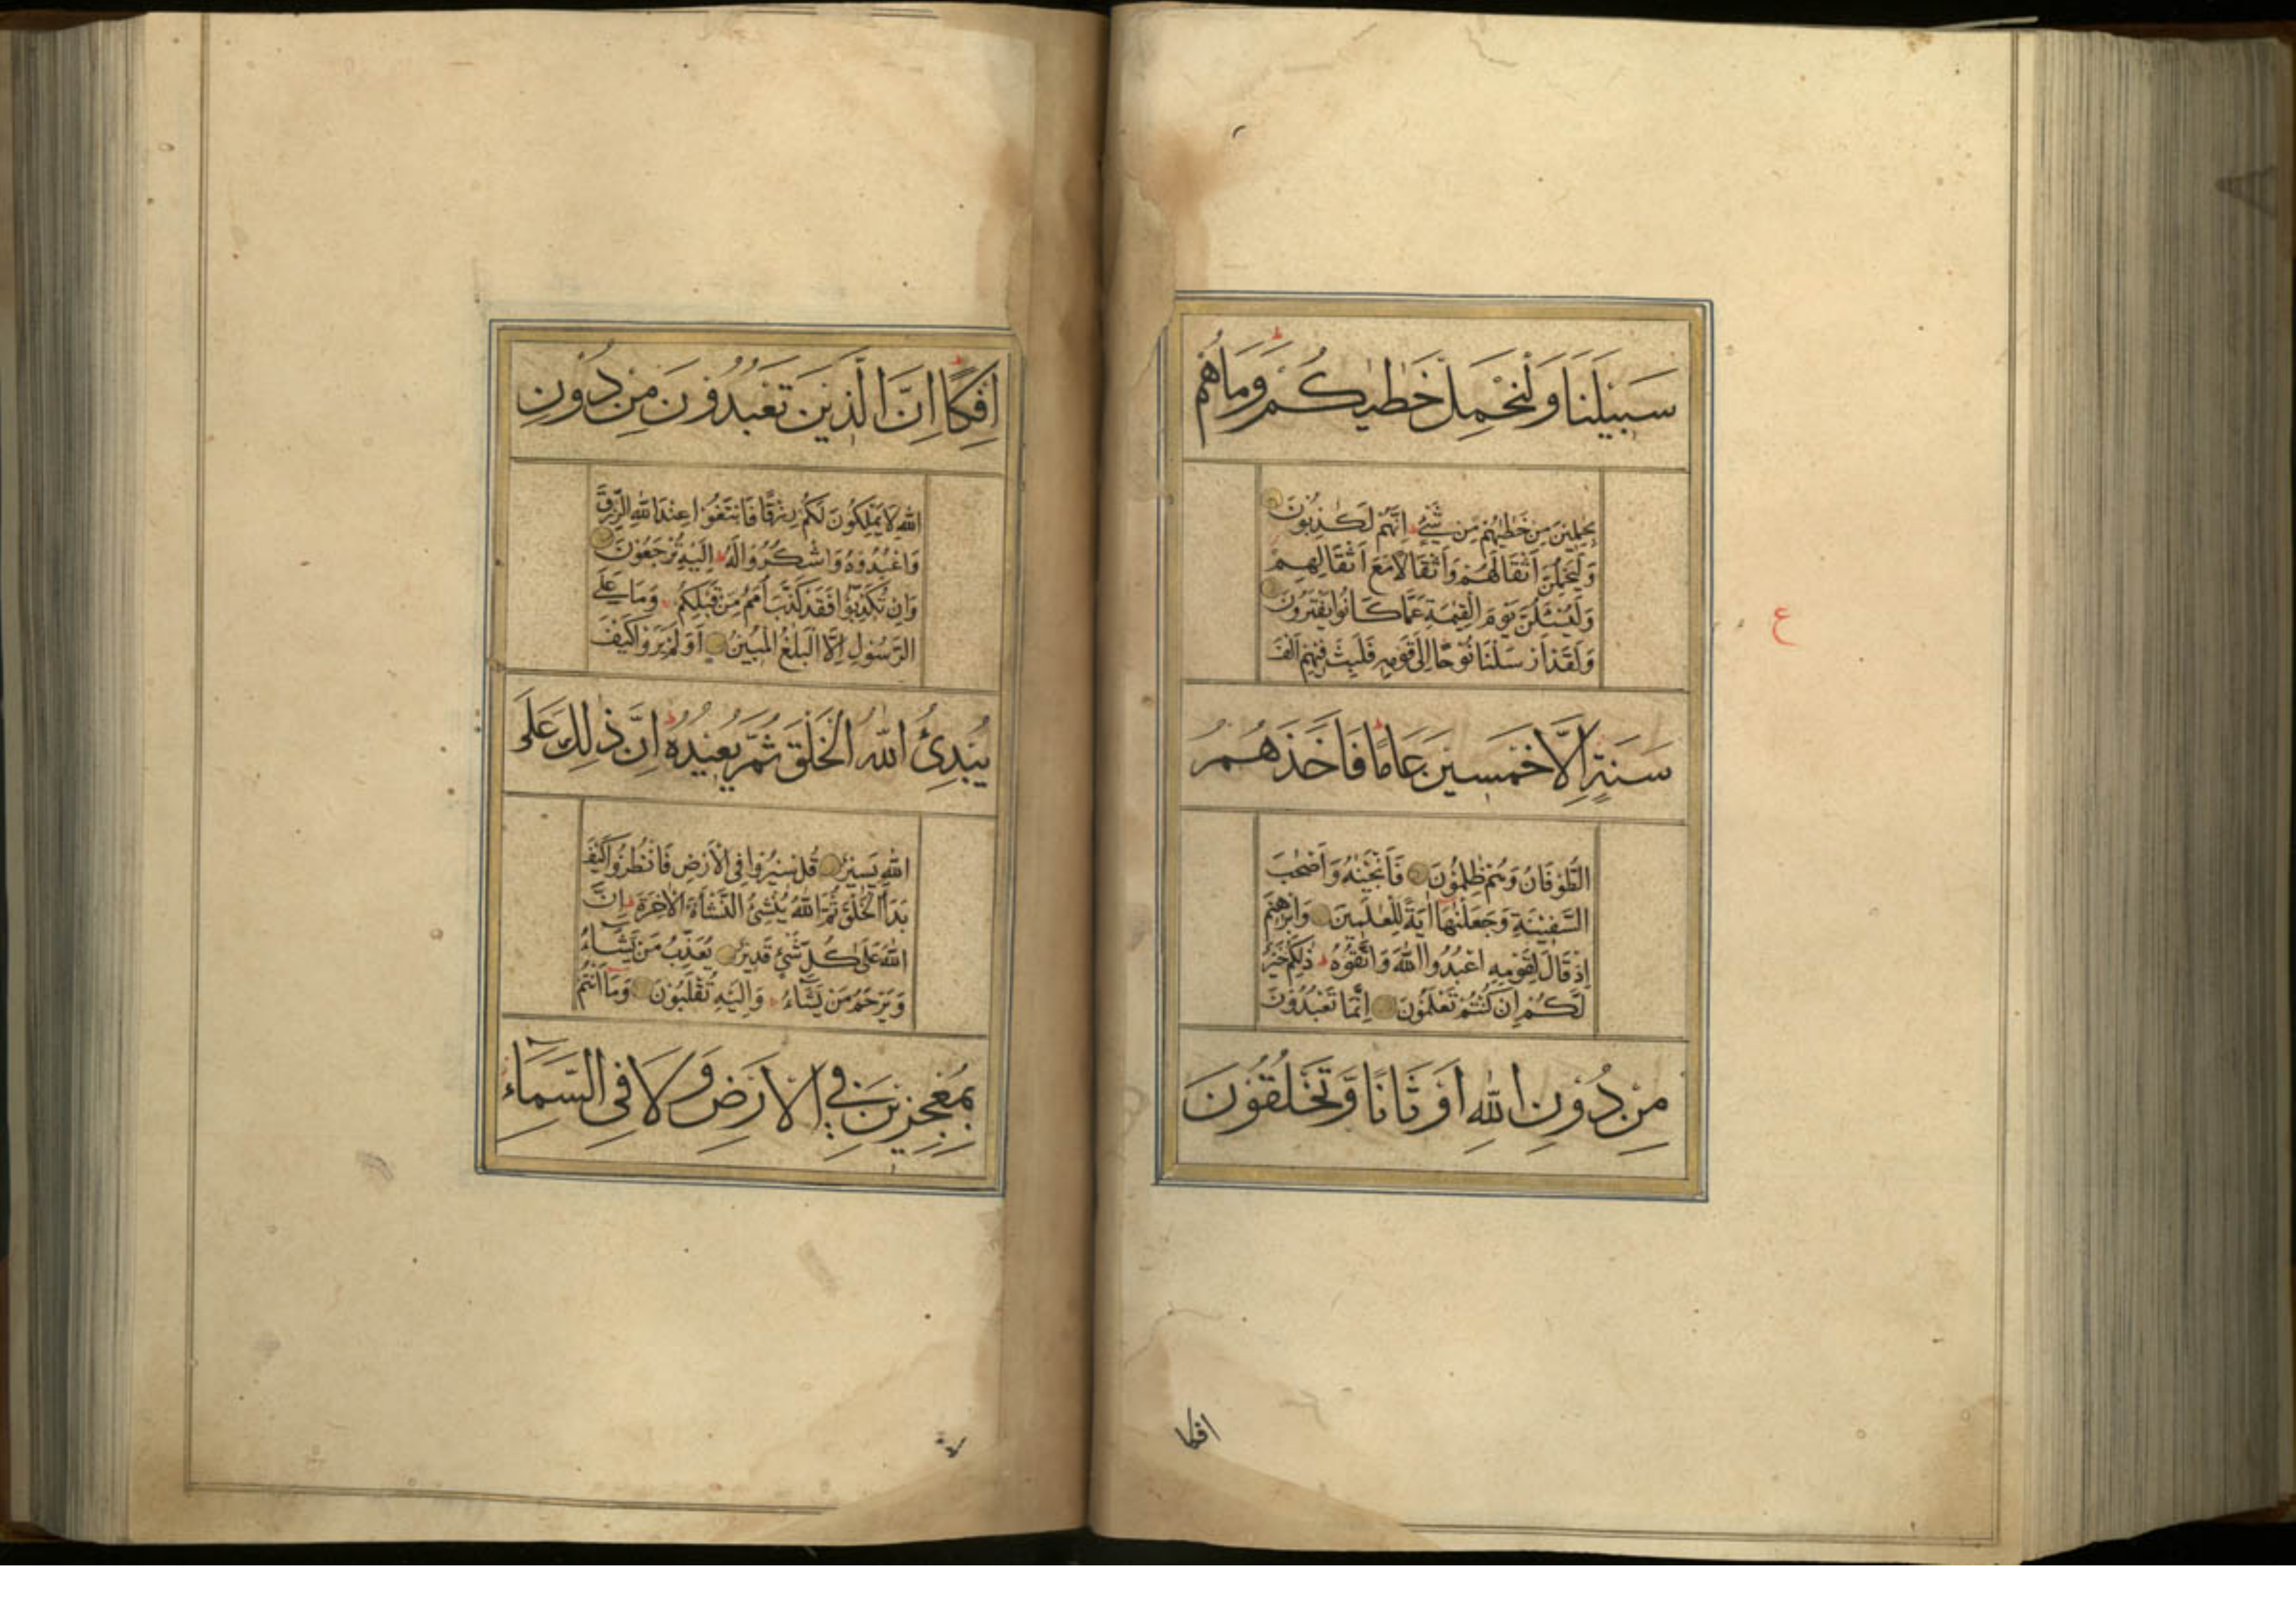 سَبِيلَنَا وَلْنَحْمِلْ خَطٰيٰكُمْ ط وَمَا هُمْ
بِحٰمِلِينَ مِنْ خَطٰيٰهُمْ مِّن شَيْءٍ ط اِنَّهُمْ لَكٰذِبُونَ
وَلَيَحْمِلُنَّ اَثْقَالَهُمْ وَاَثْقَالًا مَّعَ اَثْقَالِهِمْ
وَلَيُسْئَلُنَّ يَوْمَ الْقِيٰمَةِ عَمَّا كَانُوا يَفْتَرُونَ
وَلَقَدْ اَرْسَلْنَا نُوحًا اِلٰى قَوْمِهٖ فَلَبِثَ فِيهِمْ اَلْفَ
سَنَةٍ اِلَّا خَمْسِينَ عَامًا ط فَاَخَذَهُمُ
الطُّوفَانُ وَهُمْ ظٰلِمُونَ فَاَنْجَيْنٰهُ وَاَصْحٰبَ
السَّفِينَةِ وَجَعَلْنٰهَا اٰيَةً لِّلْعٰلَمِينَ وَاِبْرٰهِيمَ
اِذْ قَالَ لِقَوْمِهِ اعْبُدُوا اللّٰهَ وَاتَّقُوهُ ط ذٰلِكُمْ خَيْرٌ
لَّكُمْ اِنْ كُنْتُمْ تَعْلَمُونَ اِنَّمَا تَعْبُدُونَ
مِنْ دُونِ اللّٰهِ اَوْثَانًا وَّتَخْلُقُونَ
ع
افكا
اِفْكًا ط اِنَّ الَّذِينَ تَعْبُدُونَ مِنْ دُونِ
اللّٰهِ لَا يَمْلِكُونَ لَكُمْ رِزْقًا فَابْتَغُوا عِنْدَ اللّٰهِ الرِّزْقَ
وَاعْبُدُوهُ وَاشْكُرُوا لَهُ ط اِلَيْهِ تُرْجَعُونَ
وَاِنْ تُكَذِّبُوا فَقَدْ كَذَّبَ اُمَمٌ مِّنْ قَبْلِكُمْ ط وَمَا عَلَى
الرَّسُولِ اِلَّا الْبَلٰغُ الْمُبِينُ اَوَلَمْ يَرَوْا كَيْفَ
يُبْدِئُ اللّٰهُ الْخَلْقَ ثُمَّ يُعِيدُهُ ط اِنَّ ذٰلِكَ عَلَى
اللّٰهِ يَسِيرٌ قُلْ سِيرُوا فِي الْاَرْضِ فَانْظُرُوا كَيْفَ
بَدَاَ الْخَلْقَ ثُمَّ اللّٰهُ يُنْشِئُ النَّشْاَةَ الْاٰخِرَةَ ط اِنَّ
اللّٰهَ عَلٰى كُلِّ شَيْءٍ قَدِيرٌ يُعَذِّبُ مَنْ يَّشَاءُ
وَيَرْحَمُ مَنْ يَّشَاءُ ط وَاِلَيْهِ تُقْلَبُونَ وَمَا اَنْتُمْ
بِمُعْجِزِينَ فِي الْاَرْضِ وَلَا فِي السَّمَاءِ